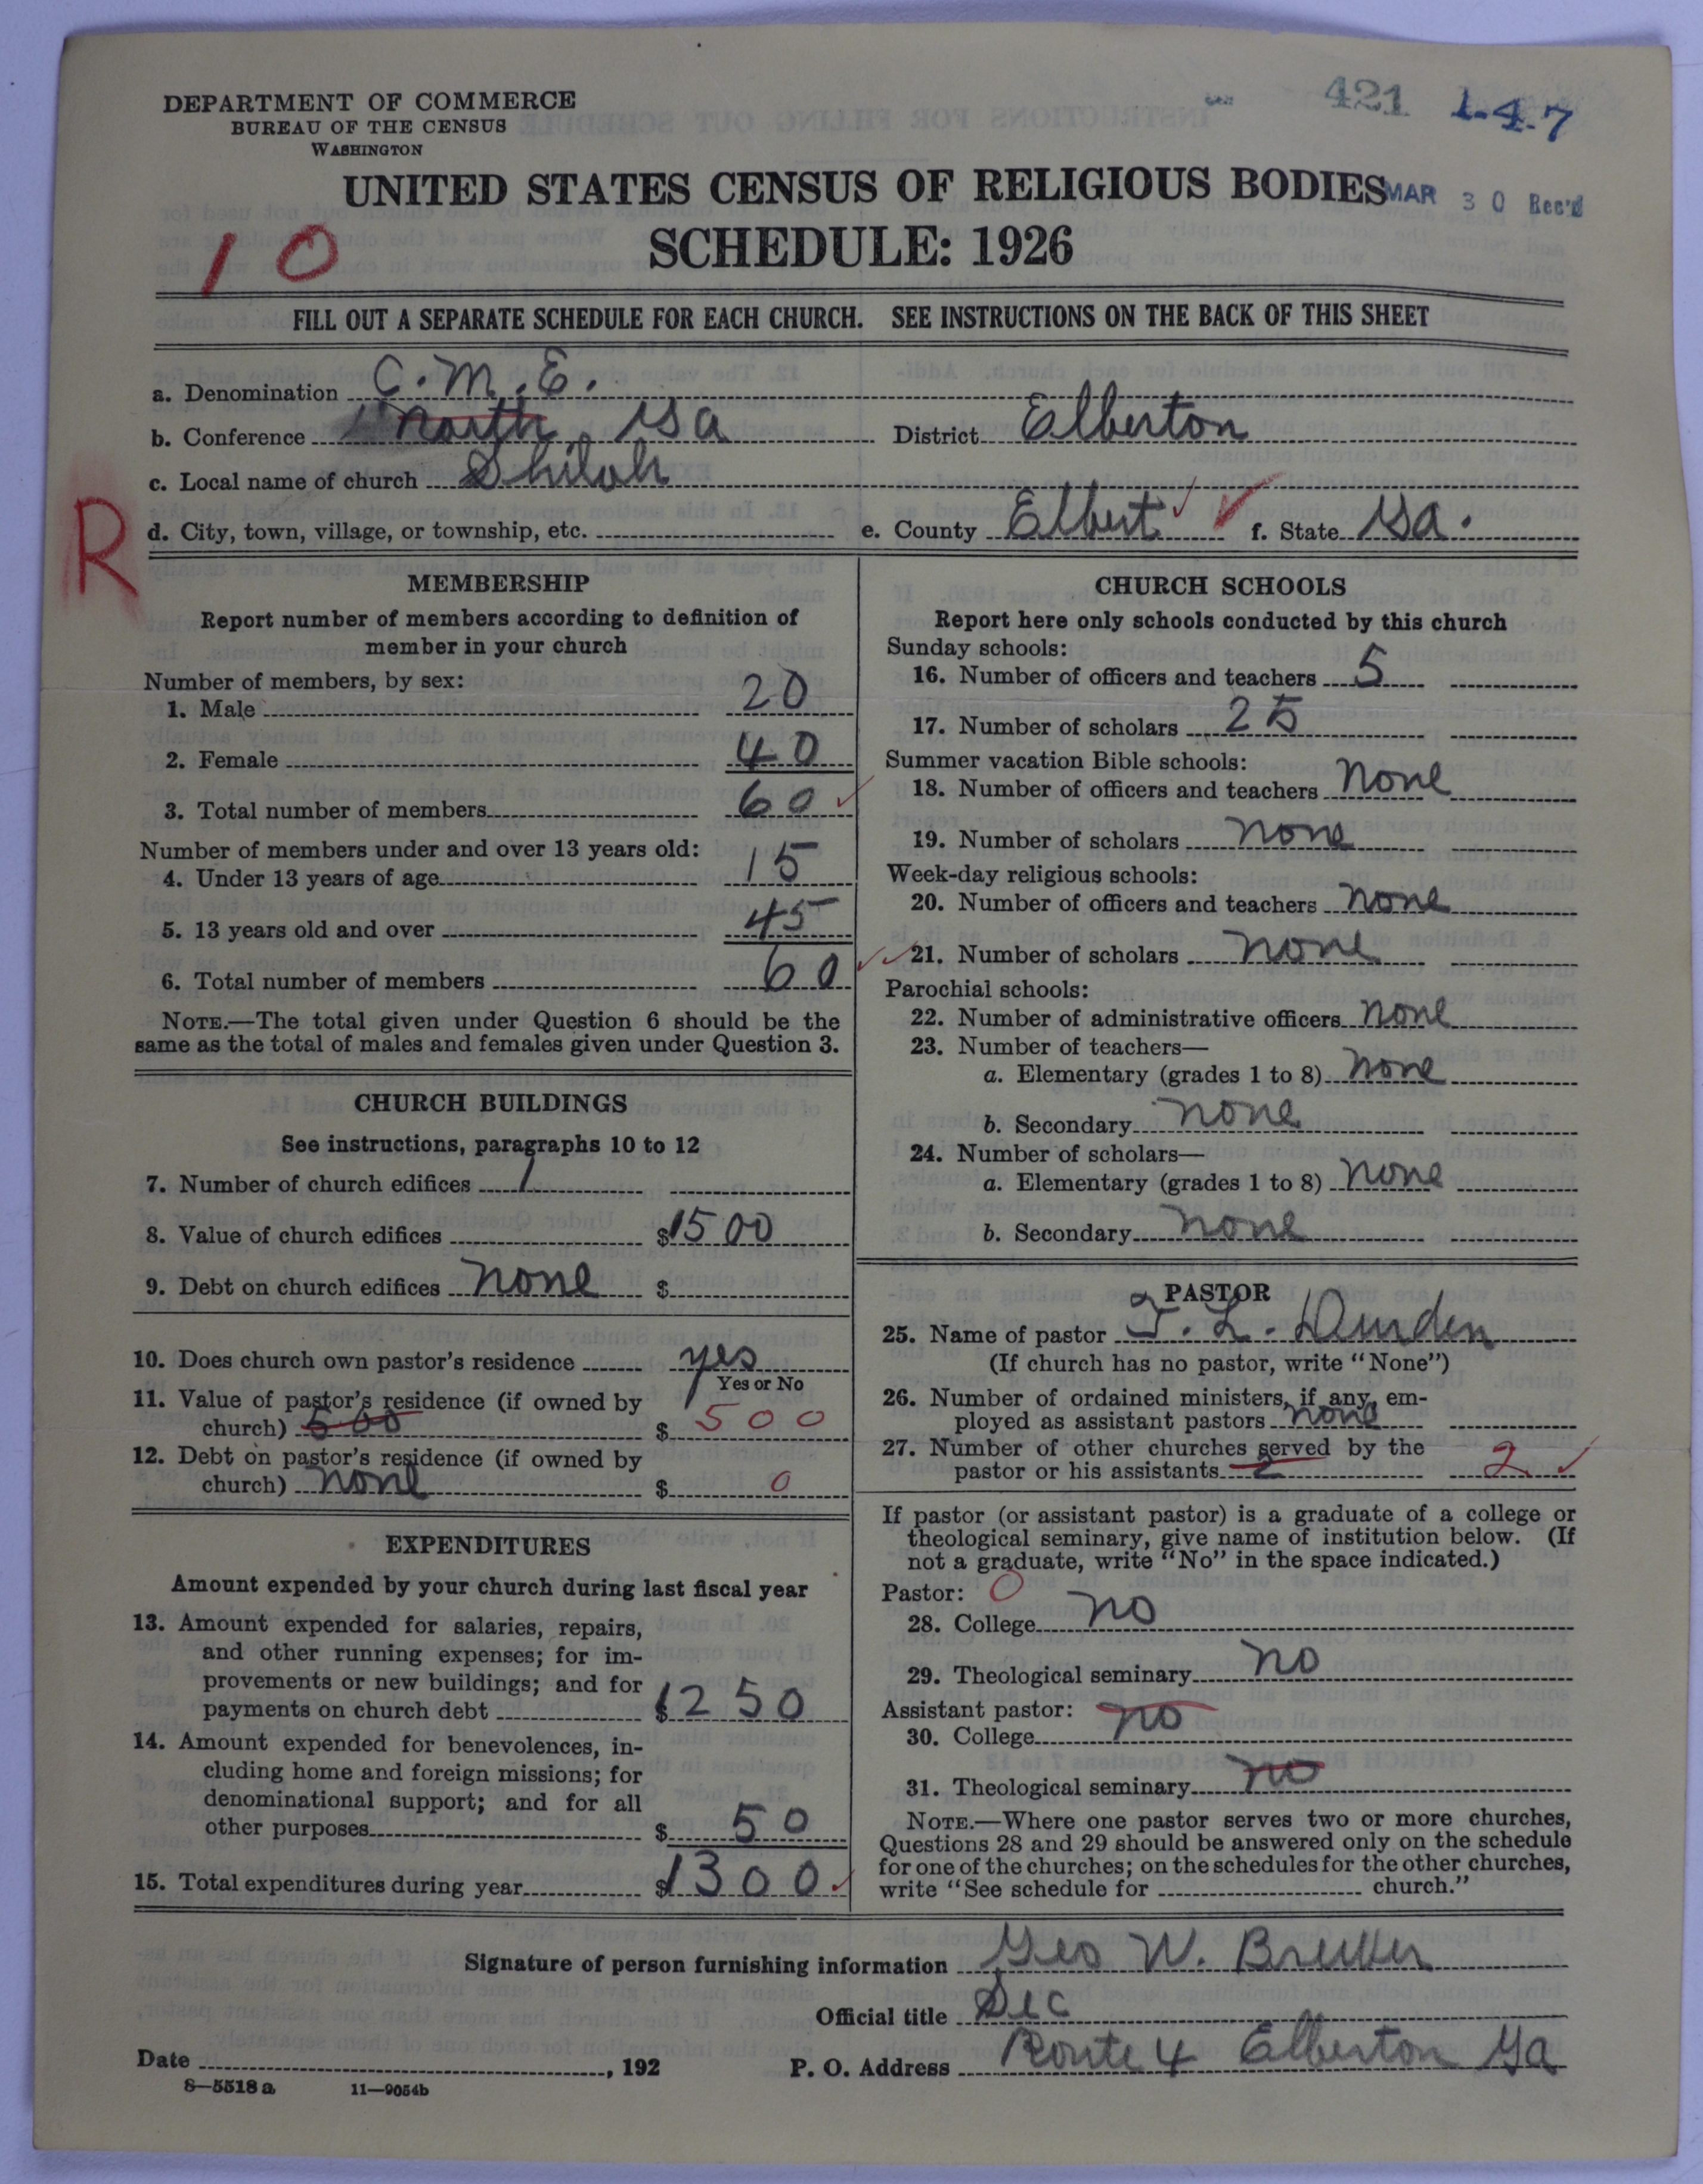 DEPARTMENT OF COMMERCE
BUREAU OF THE CENSUS
WASHINGTON
421 1-4-7
UNITED STATES CENSUS OF RELIGIOUS BODIES
MAR 30 Rec'd
SCHEDULE: 1926
10
FILL OUT A SEPARATE SCHEDULE FOR EACH CHURCH. SEE INSTRUCTIONS ON THE BACK OF THIS SHEET
a. Denomination C.M.E.
b. Conference North Ga District Elberton
c. Local name of church Shiloh
R
d. City, town, village, or township, etc. e. County Elbert f. State Ga.
MEMBERSHIP
Report number of members according to definition of
member in your church
Number of members, by sex:
1. Male 20
2. Female 40
3. Total number of members 60
Number of members under and over 13 years old:
4. Under 13 years of age 15
5. 13 years old and over 45
6. Total number of members 60
NOTE.—The total given under Question 6 should be the
same as the total of males and females given under Question 3.
CHURCH BUILDINGS
See instructions, paragraphs 10 to 12
7. Number of church edifices 1
8. Value of church edifices $1500
9. Debt on church edifices none $
10. Does church own pastor's residence yes
Yes or No
11. Value of pastor's residence (if owned by
church) 500 $ 500
12. Debt on pastor's residence (if owned by
church) none $ 0
EXPENDITURES
Amount expended by your church during last fiscal year
13. Amount expended for salaries, repairs,
and other running expenses; for im-
provements or new buildings; and for
payments on church debt $1250
14. Amount expended for benevolences, in-
cluding home and foreign missions; for
denominational support; and for all
other purposes $ 50
15. Total expenditures during year $1300
CHURCH SCHOOLS
Report here only schools conducted by this church
Sunday schools:
16. Number of officers and teachers 5
17. Number of scholars 25
Summer vacation Bible schools:
18. Number of officers and teachers none
19. Number of scholars none
Week-day religious schools:
20. Number of officers and teachers none
21. Number of scholars none
Parochial schools:
22. Number of administrative officers none
23. Number of teachers—
a. Elementary (grades 1 to 8) none
b. Secondary none
24. Number of scholars—
a. Elementary (grades 1 to 8) none
b. Secondary none
PASTOR
25. Name of pastor J. L. Durden
(If church has no pastor, write "None")
26. Number of ordained ministers, if any, em-
ployed as assistant pastors none
27. Number of other churches served by the
pastor or his assistants 2 2
If pastor (or assistant pastor) is a graduate of a college or
theological seminary, give name of institution below. (If
not a graduate, write "No" in the space indicated.)
Pastor: 0
28. College no
29. Theological seminary no
Assistant pastor:
30. College no
31. Theological seminary no
NOTE.—Where one pastor serves two or more churches,
Questions 28 and 29 should be answered only on the schedule
for one of the churches; on the schedules for the other churches,
write "See schedule for church."
Signature of person furnishing information Geo W.
Official title Sec
Date , 192 P. O. Address Route 4 Elberton Ga
8—5518 a 11—9054b